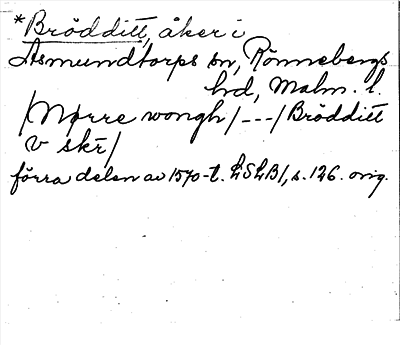 *Brödditt, åker i
Asmundtorps sn, Rönnebergs
hd, Malm. l.
/Nørre wongh/---/Brödditt
v skr/
förra delen av 1570-t. LSLB1, s. 126. orig.